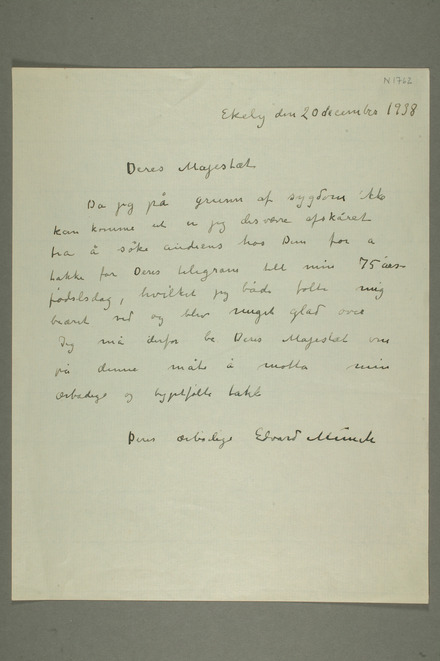 N 1762
Ekely den 20 december 1938
Deres Majestæt
Da jeg på grunn af sygdom ikke
kan komme ut er jeg desværre afskåret
fra å søke audiens hos Dem for a
takke for Deres telegram till min 75 års
fødselsdag, hvilket jeg både følte mig
beæret ved og blev meget glad over
Jeg må derfor be Deres Majestæt om
på denne måte å motta min
ærbødige og dyptfølte takk
Deres ærbødige Edvard Munch